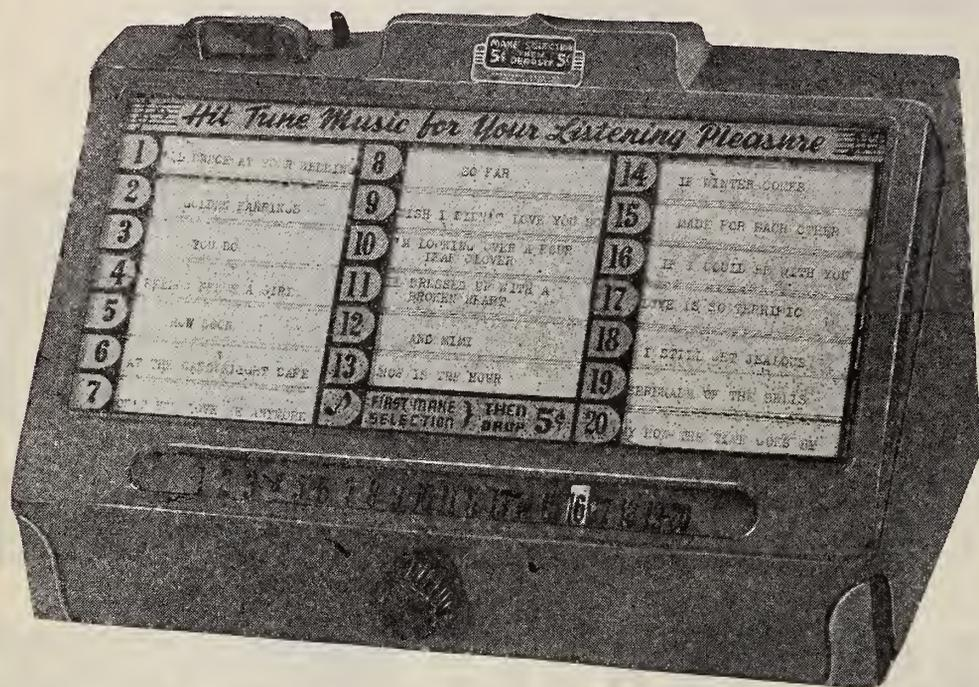 MAKE SELECTION
5¢ THEN 5¢
DEPOSIT
Hit Tune Music for Your Listening Pleasure
1 DANCE AT YOUR WEDDING
2 GOLDEN EARRINGS
3 YOU DO
4 A GIRL
5 HOW SOON
6 AT THE CAFE
7 LOVE ME ANYMORE
8 SO FAR
9 WISH I DIDN'T LOVE YOU SO
10 I'M LOOKING OVER A FOUR
LEAF CLOVER
11 DRESSED UP WITH A
BROKEN HEART
12 AND MIMI
13 NOW IS THE HOUR
FIRST MAKE
SELECTION } THEN
DROP 5¢
14 IF WINTER COMES
15 MADE FOR EACH OTHER
16 IF I COULD BE WITH YOU
17 LOVE IS SO TERRIFIC
18 I STILL GET JEALOUS
19 SERENADE OF THE BELLS
20 HOW THE TIME GOES BY
2 3 4 5 6 7 8 9 10 11 12 13 14 15 16 17 18 19 20